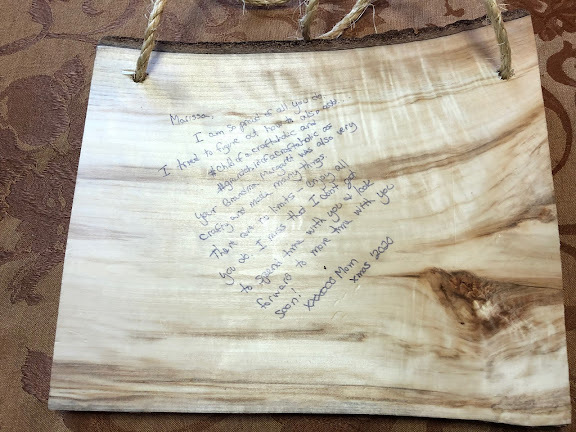 Marissa,
I am so proud of all you do
I tried to figure out how to also add...
#Child of a craftaholic and
#grandchild of a craftaholic as
your Grandma Margaret was also very
crafty and made many things.
There are no limits - enjoy all
you do. I miss that I don't get
to spend time with you & look
forward to more time with you
soon!! xxxoooo Mom
xmas '2020